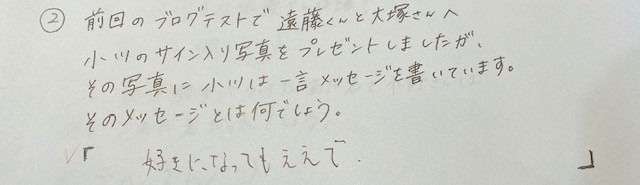 ② 前回のブログテストで遠藤くんと大塚さんへ
小川のサイン入り写真をプレゼントしましたが、
その写真に小川は一言メッセージを書いています。
そのメッセージとは何でしょう。
「好きになってもええで 」